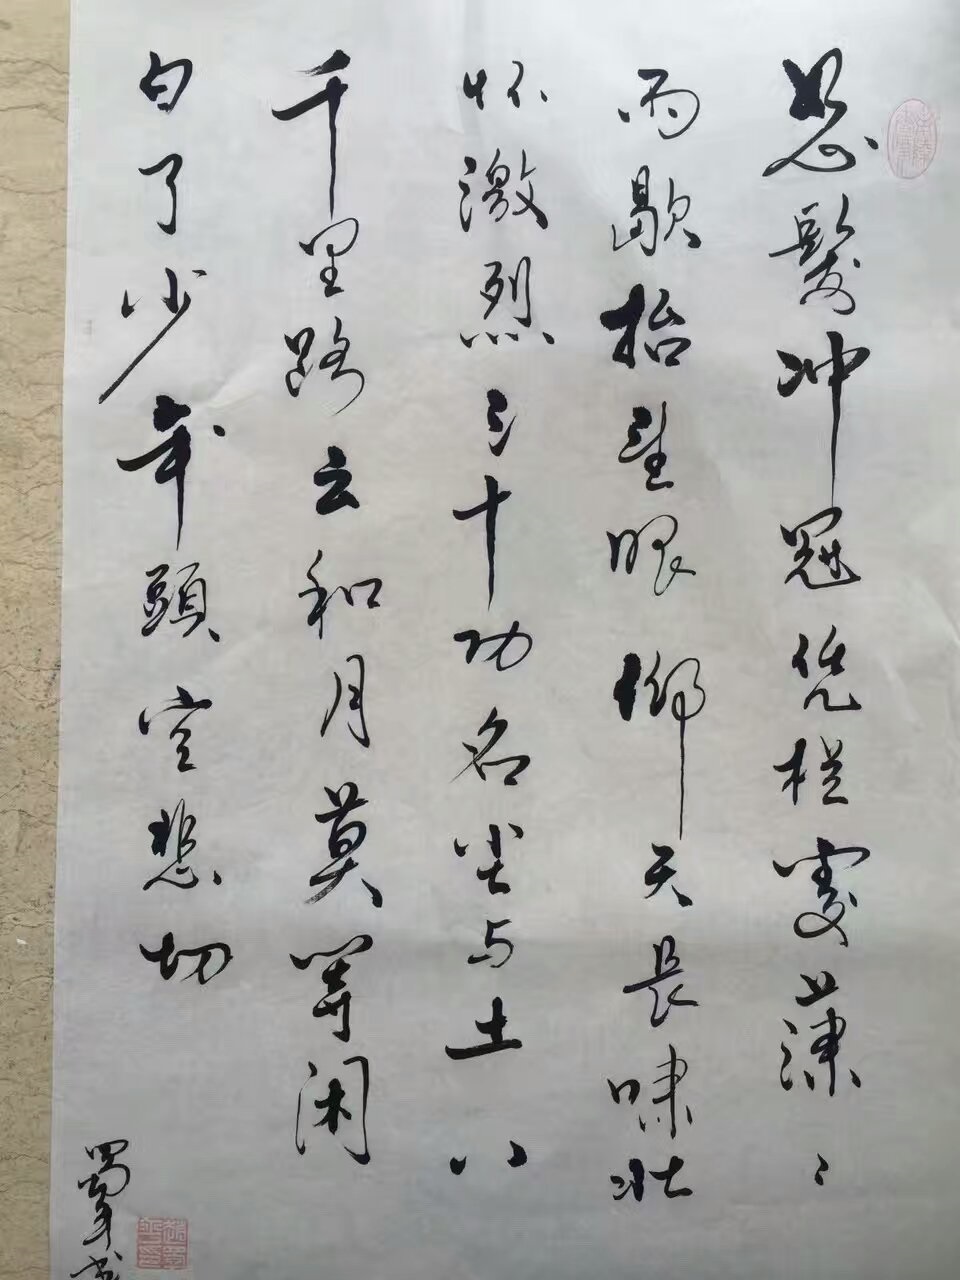 怒髮冲冠凭栏處潇〻
雨歇抬望眼仰天長啸壮
怀激烈三十功名尘与土八
千里路云和月莫等闲
白了少年頭空悲切